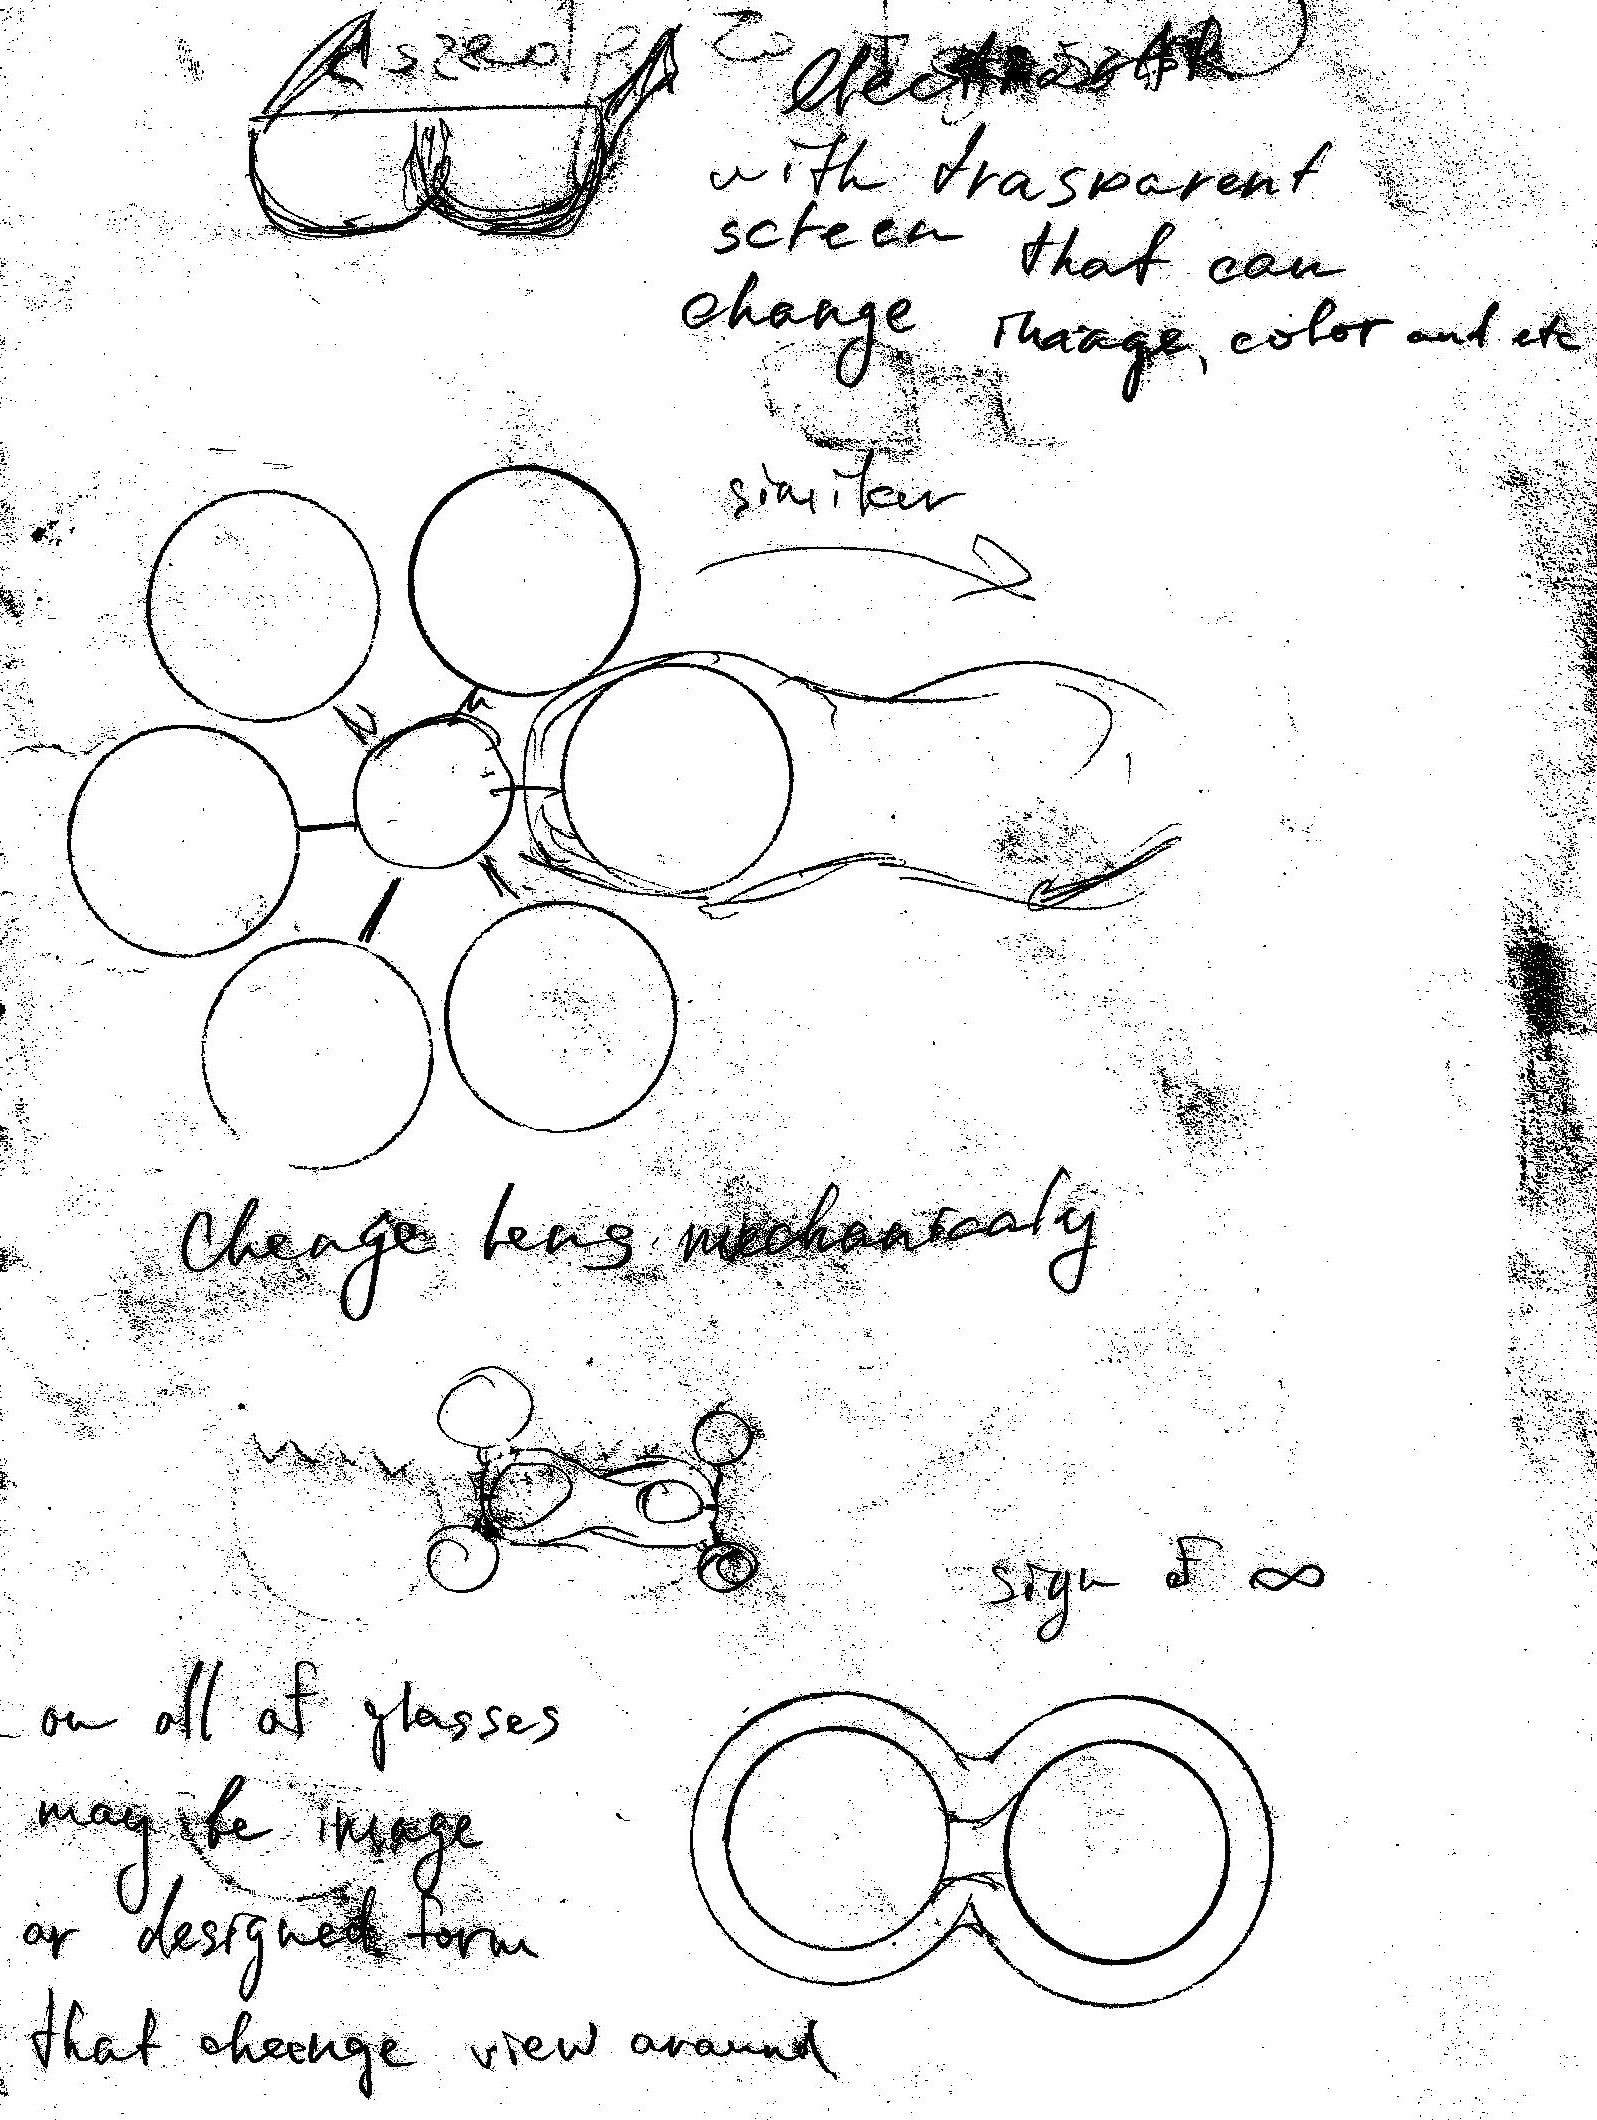 with trasparent
screen that can
change image, color and etc
similar
Change lens mechanicaly
sign of ∞
on all of glasses
may be image
or designed form
that change view around